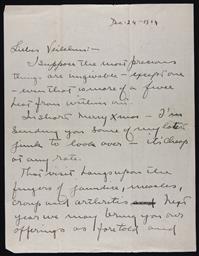 Dec-24-1914
I suppose the most precious
things are ungivable - except one
- even that is more of a
heat from within
In short Merry Xmas - I'm
sending you some of my later
junk to look over - its cheap
at any rate.
That visit hangs upon the
fingers of jaundice, measles,
croup and arthritis and Next
year we may bring you our
offerings as foretold and